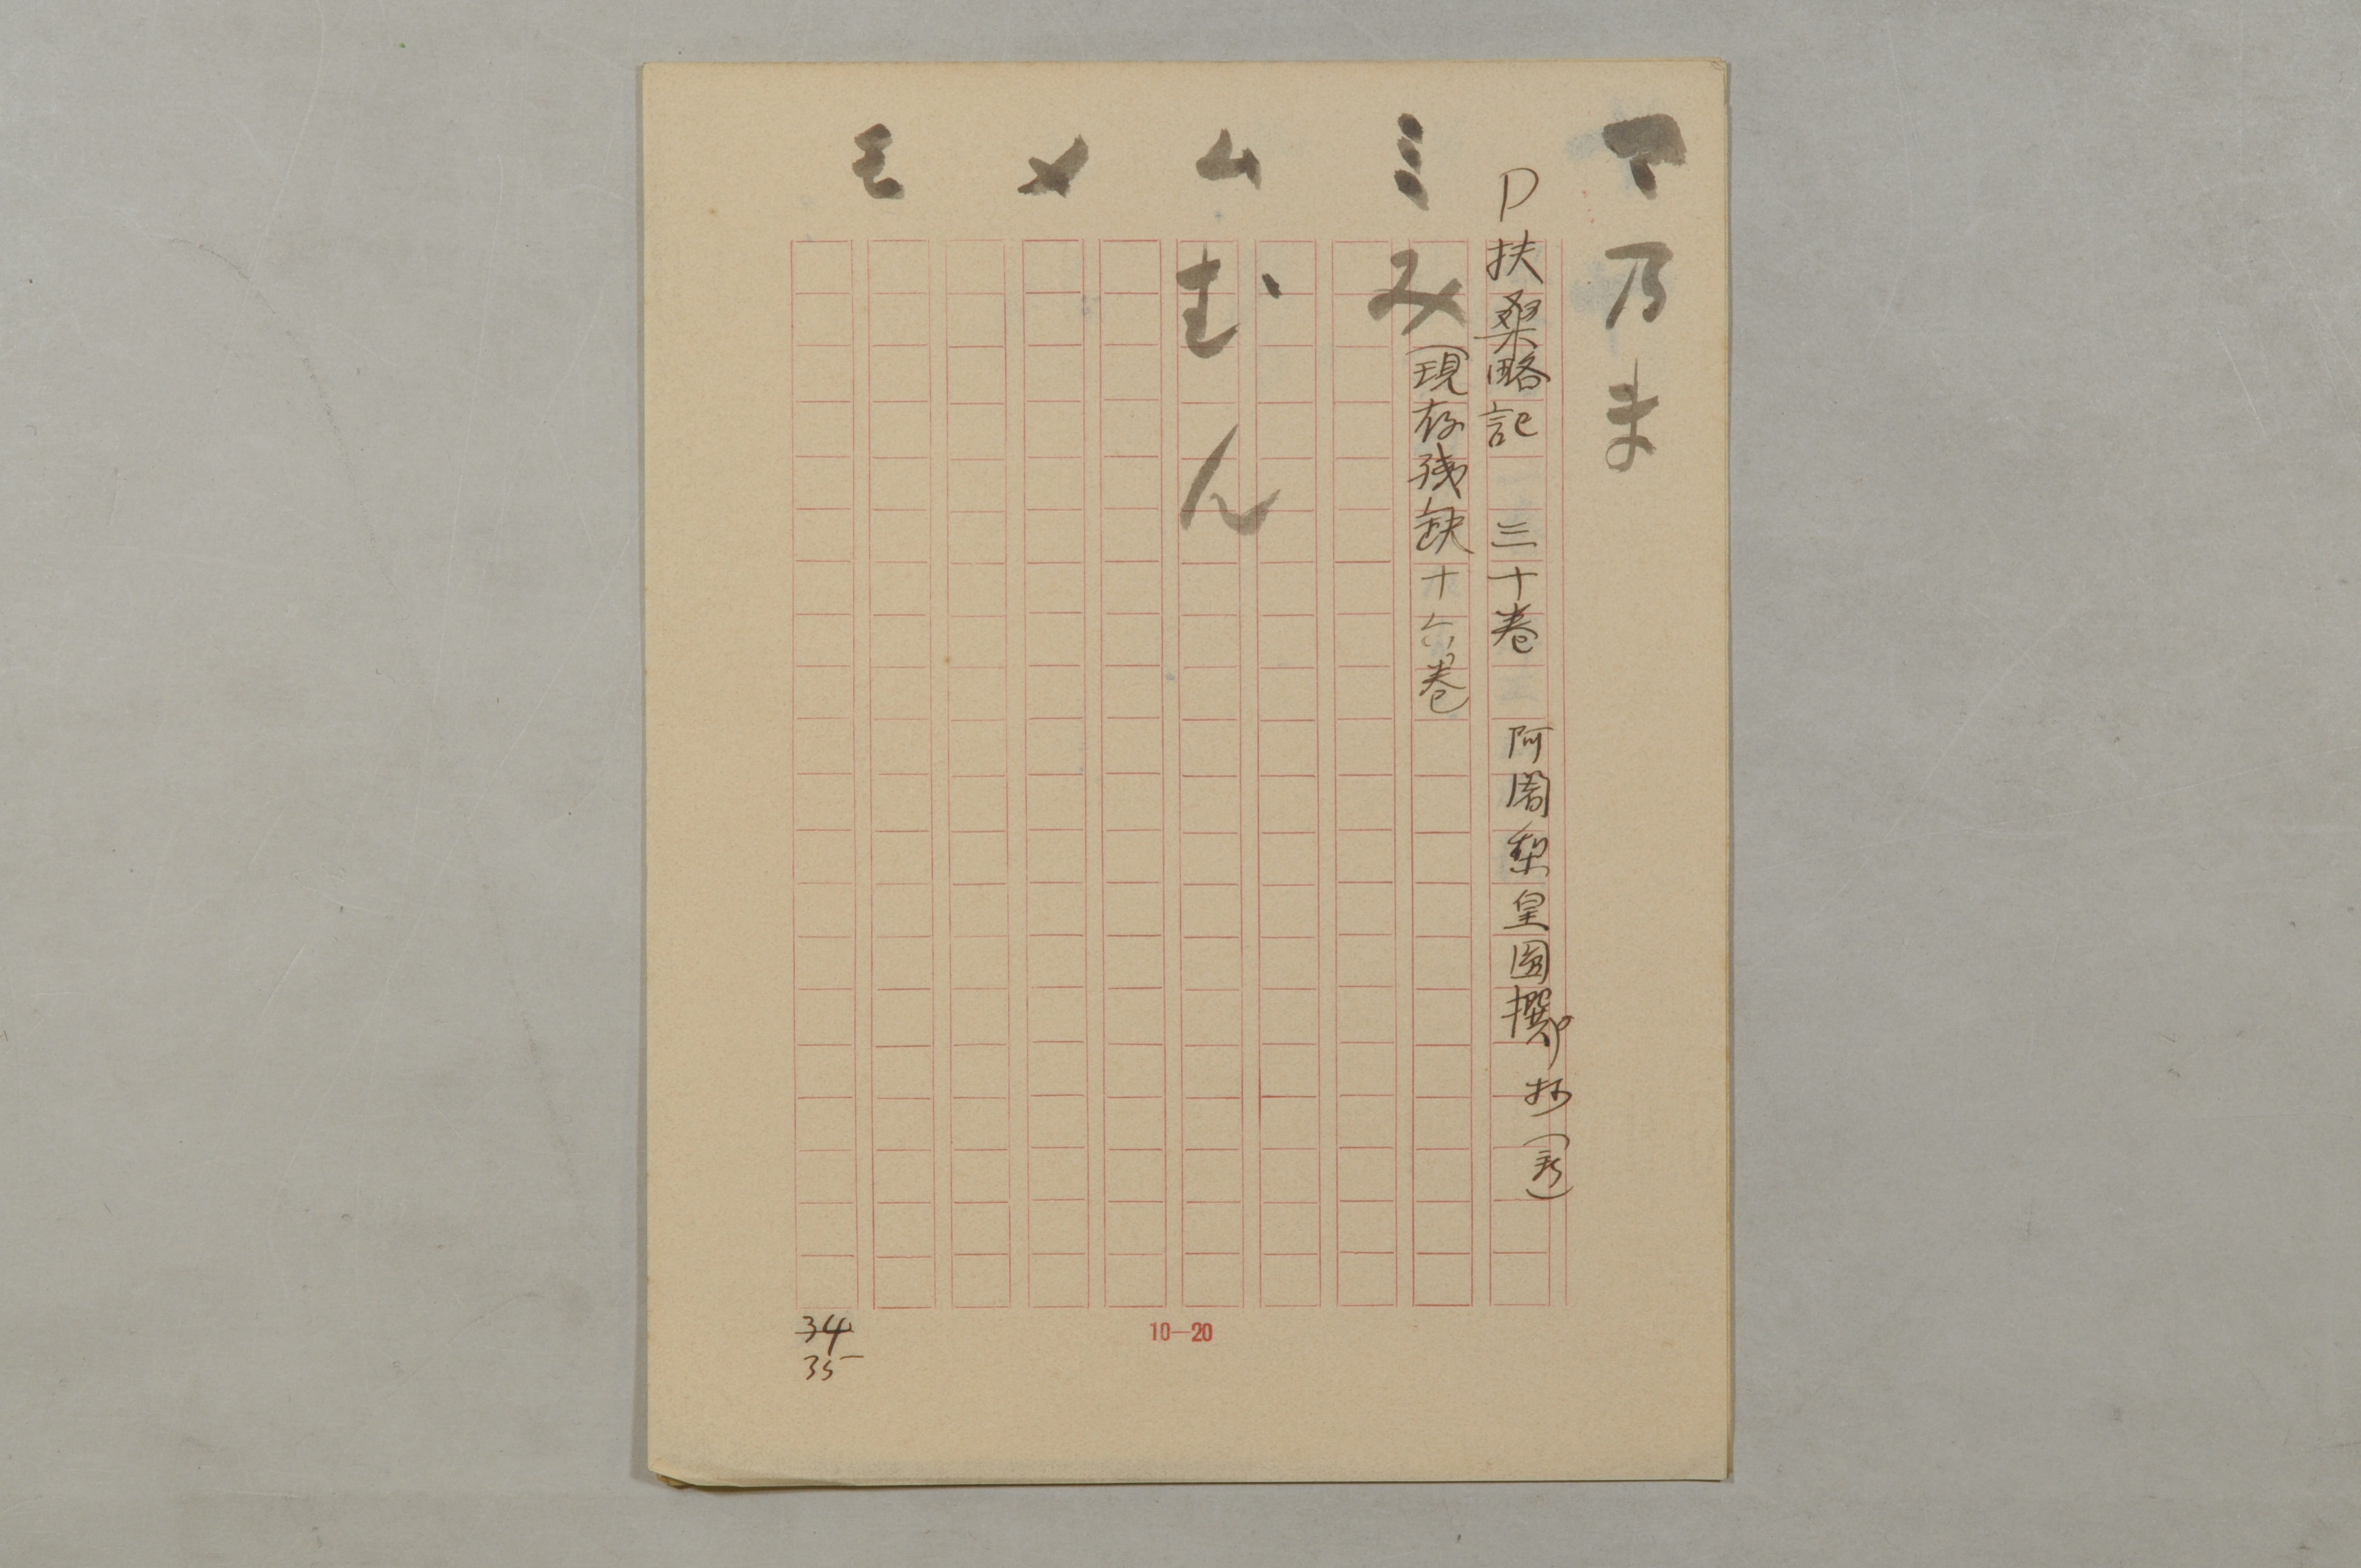 マ ミ ム メ モ
乃ま
P扶桑略記 三十巻 阿闍梨皇圓撰 抄
み
(現存残缺十六巻
むん
34
35
10—20